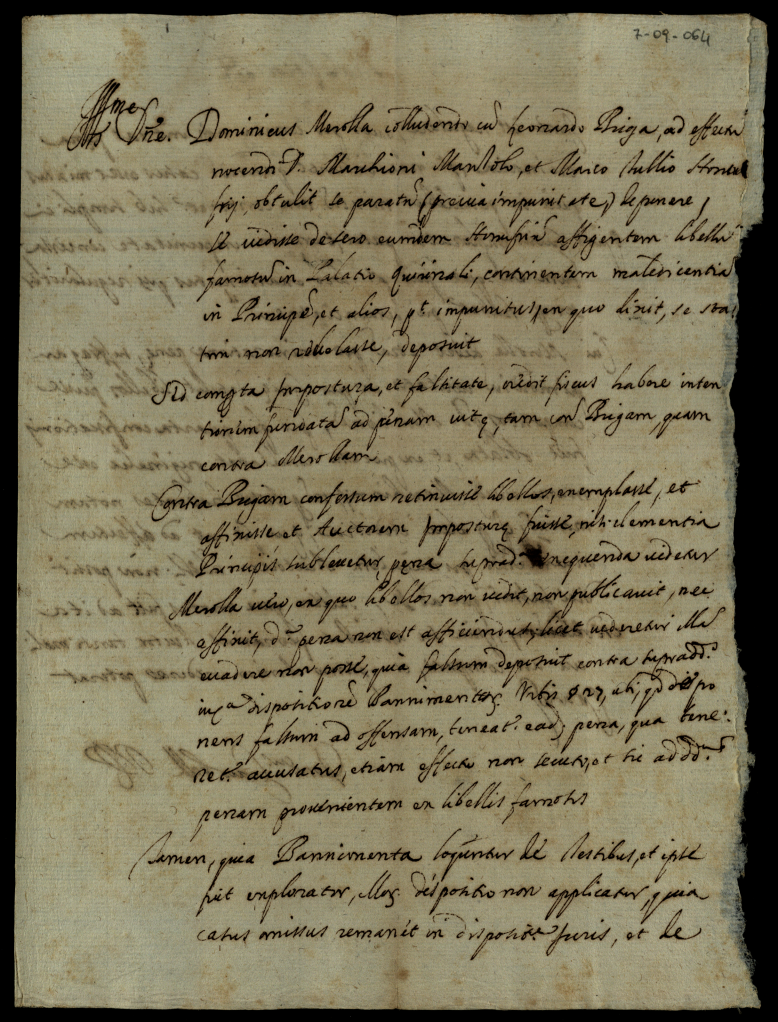 7-09-064
Illme Dne. Dominicus Merolla colludendo cũ Leonardo Briga, ad effectũ
nocendi D. Marchioni Manlolo, et Marco Tullio
obtulit se paratũ (previa impunitate,) deponere,
se vidisse de sero eumdem affigentem libellũ
famosũ in Palatio Quirinali, continentem maledicentiã
in Principẽ, et alios, pt impunitus, ex quo dixit, se sta
tim non revelasse, deposuit
Sed comperta impostura, et falsitate, credit fiscus habere inten
tionem fundatã ad penam vitę, tam con Brigam, quam
contra Merollam
Contra Brigam confessum retinuisse libellos, exemplasse, et
affixisse et Auctorem Imposturę fuisse, nisi clementia
Principis sublevetur, pena suprad.a exequenda videtur
Merolla vero, ex quo libellos non vidit, non publicavit, nec
affixit, d.a pena non est afficiendus, licet videretur illã
evadere non posse, quia falsum deposuit contra supradd.m
iuxa dispositionẽ Bannimentoꝝ Vrbis § 27, ubi, qd depo
nens falsum ad offensam, teneat.r eadẽ pena, qua tene:
ret.r accusatus, etiam effectu non secuto, et sic ad dd.am
penam provenientem ex libellis famosis
Tamen, quia Bannimenta loquuntur de Testibus, et ipse
fuit explorator, illoꝝ dispositio non applicatur, quia
casus omissus remanet in dispositõe Juris, et de